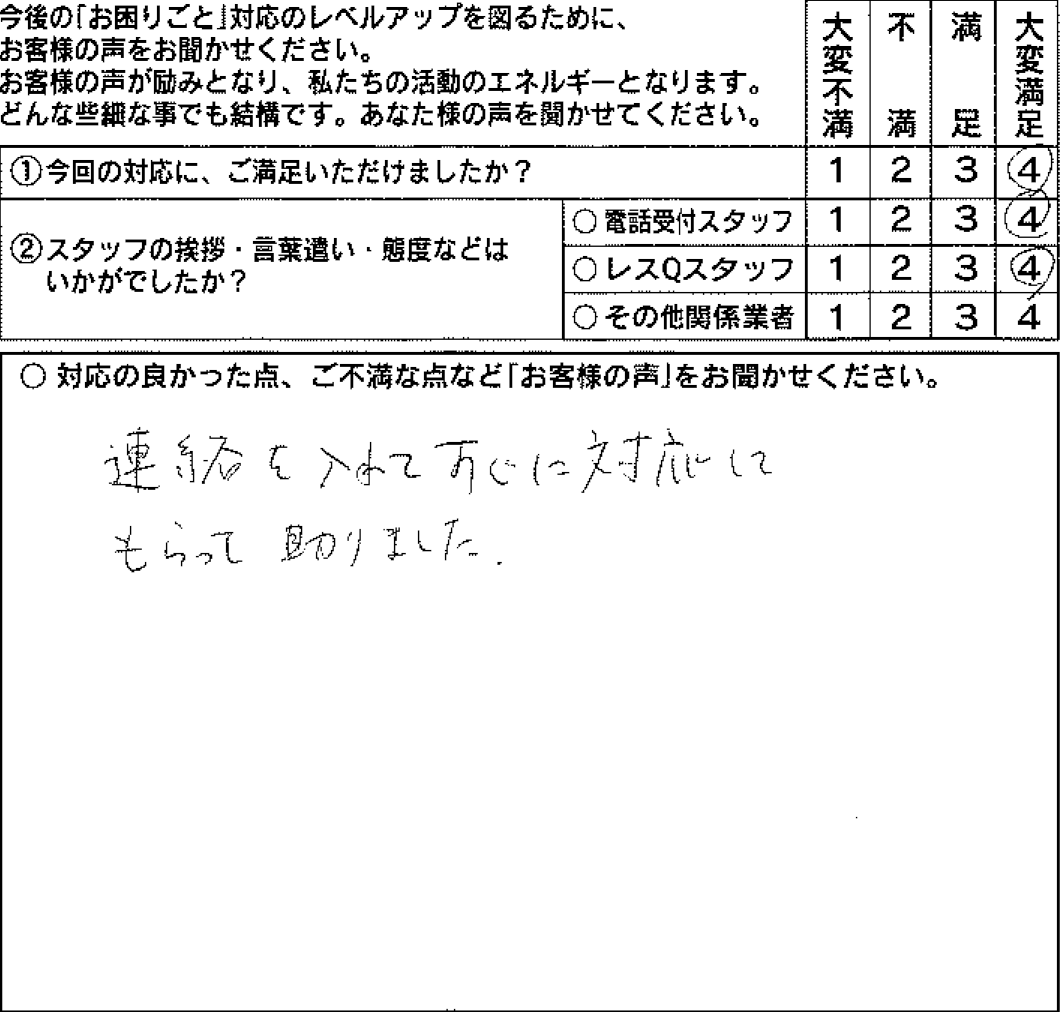 今後の「お困りごと」対応のレベルアップを図るために、
お客様の声をお聞かせください。
お客様の声が励みとなり、私たちの活動のエネルギーとなります。
どんな些細な事でも結構です。あなた様の声を聞かせてください。
大変不満 不満 満足 大変満足
①今回の対応に、ご満足いただけましたか？ 1 2 3 4
②スタッフの挨拶・言葉遣い・態度などは
いかがでしたか？
○電話受付スタッフ 1 2 3 4
○レスQスタッフ 1 2 3 4
○その他関係業者 1 2 3 4
○対応の良かった点、ご不満な点など「お客様の声」をお聞かせください。
連絡を入れてすぐに対応して
もらって助りました.